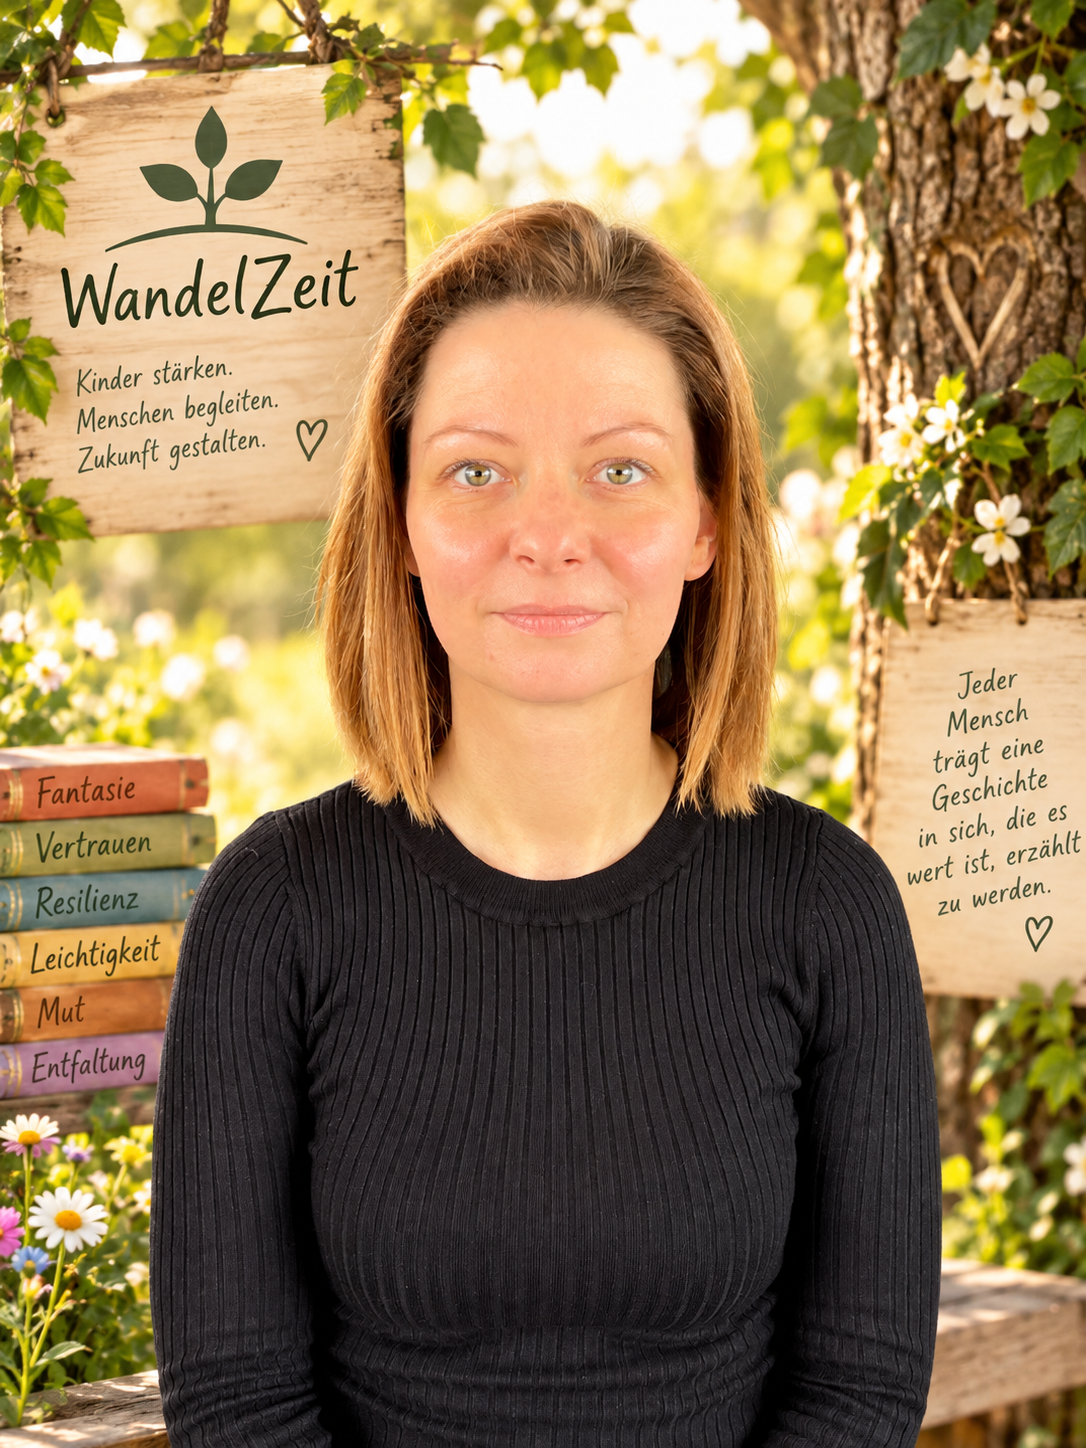 WandelZeit
Kinder stärken.
Menschen begleiten.
Zukunft gestalten.
Fantasie
Vertrauen
Resilienz
Leichtigkeit
Mut
Entfaltung
Jeder
Mensch
trägt eine
Geschichte
in sich, die es
wert ist, erzählt
zu werden.